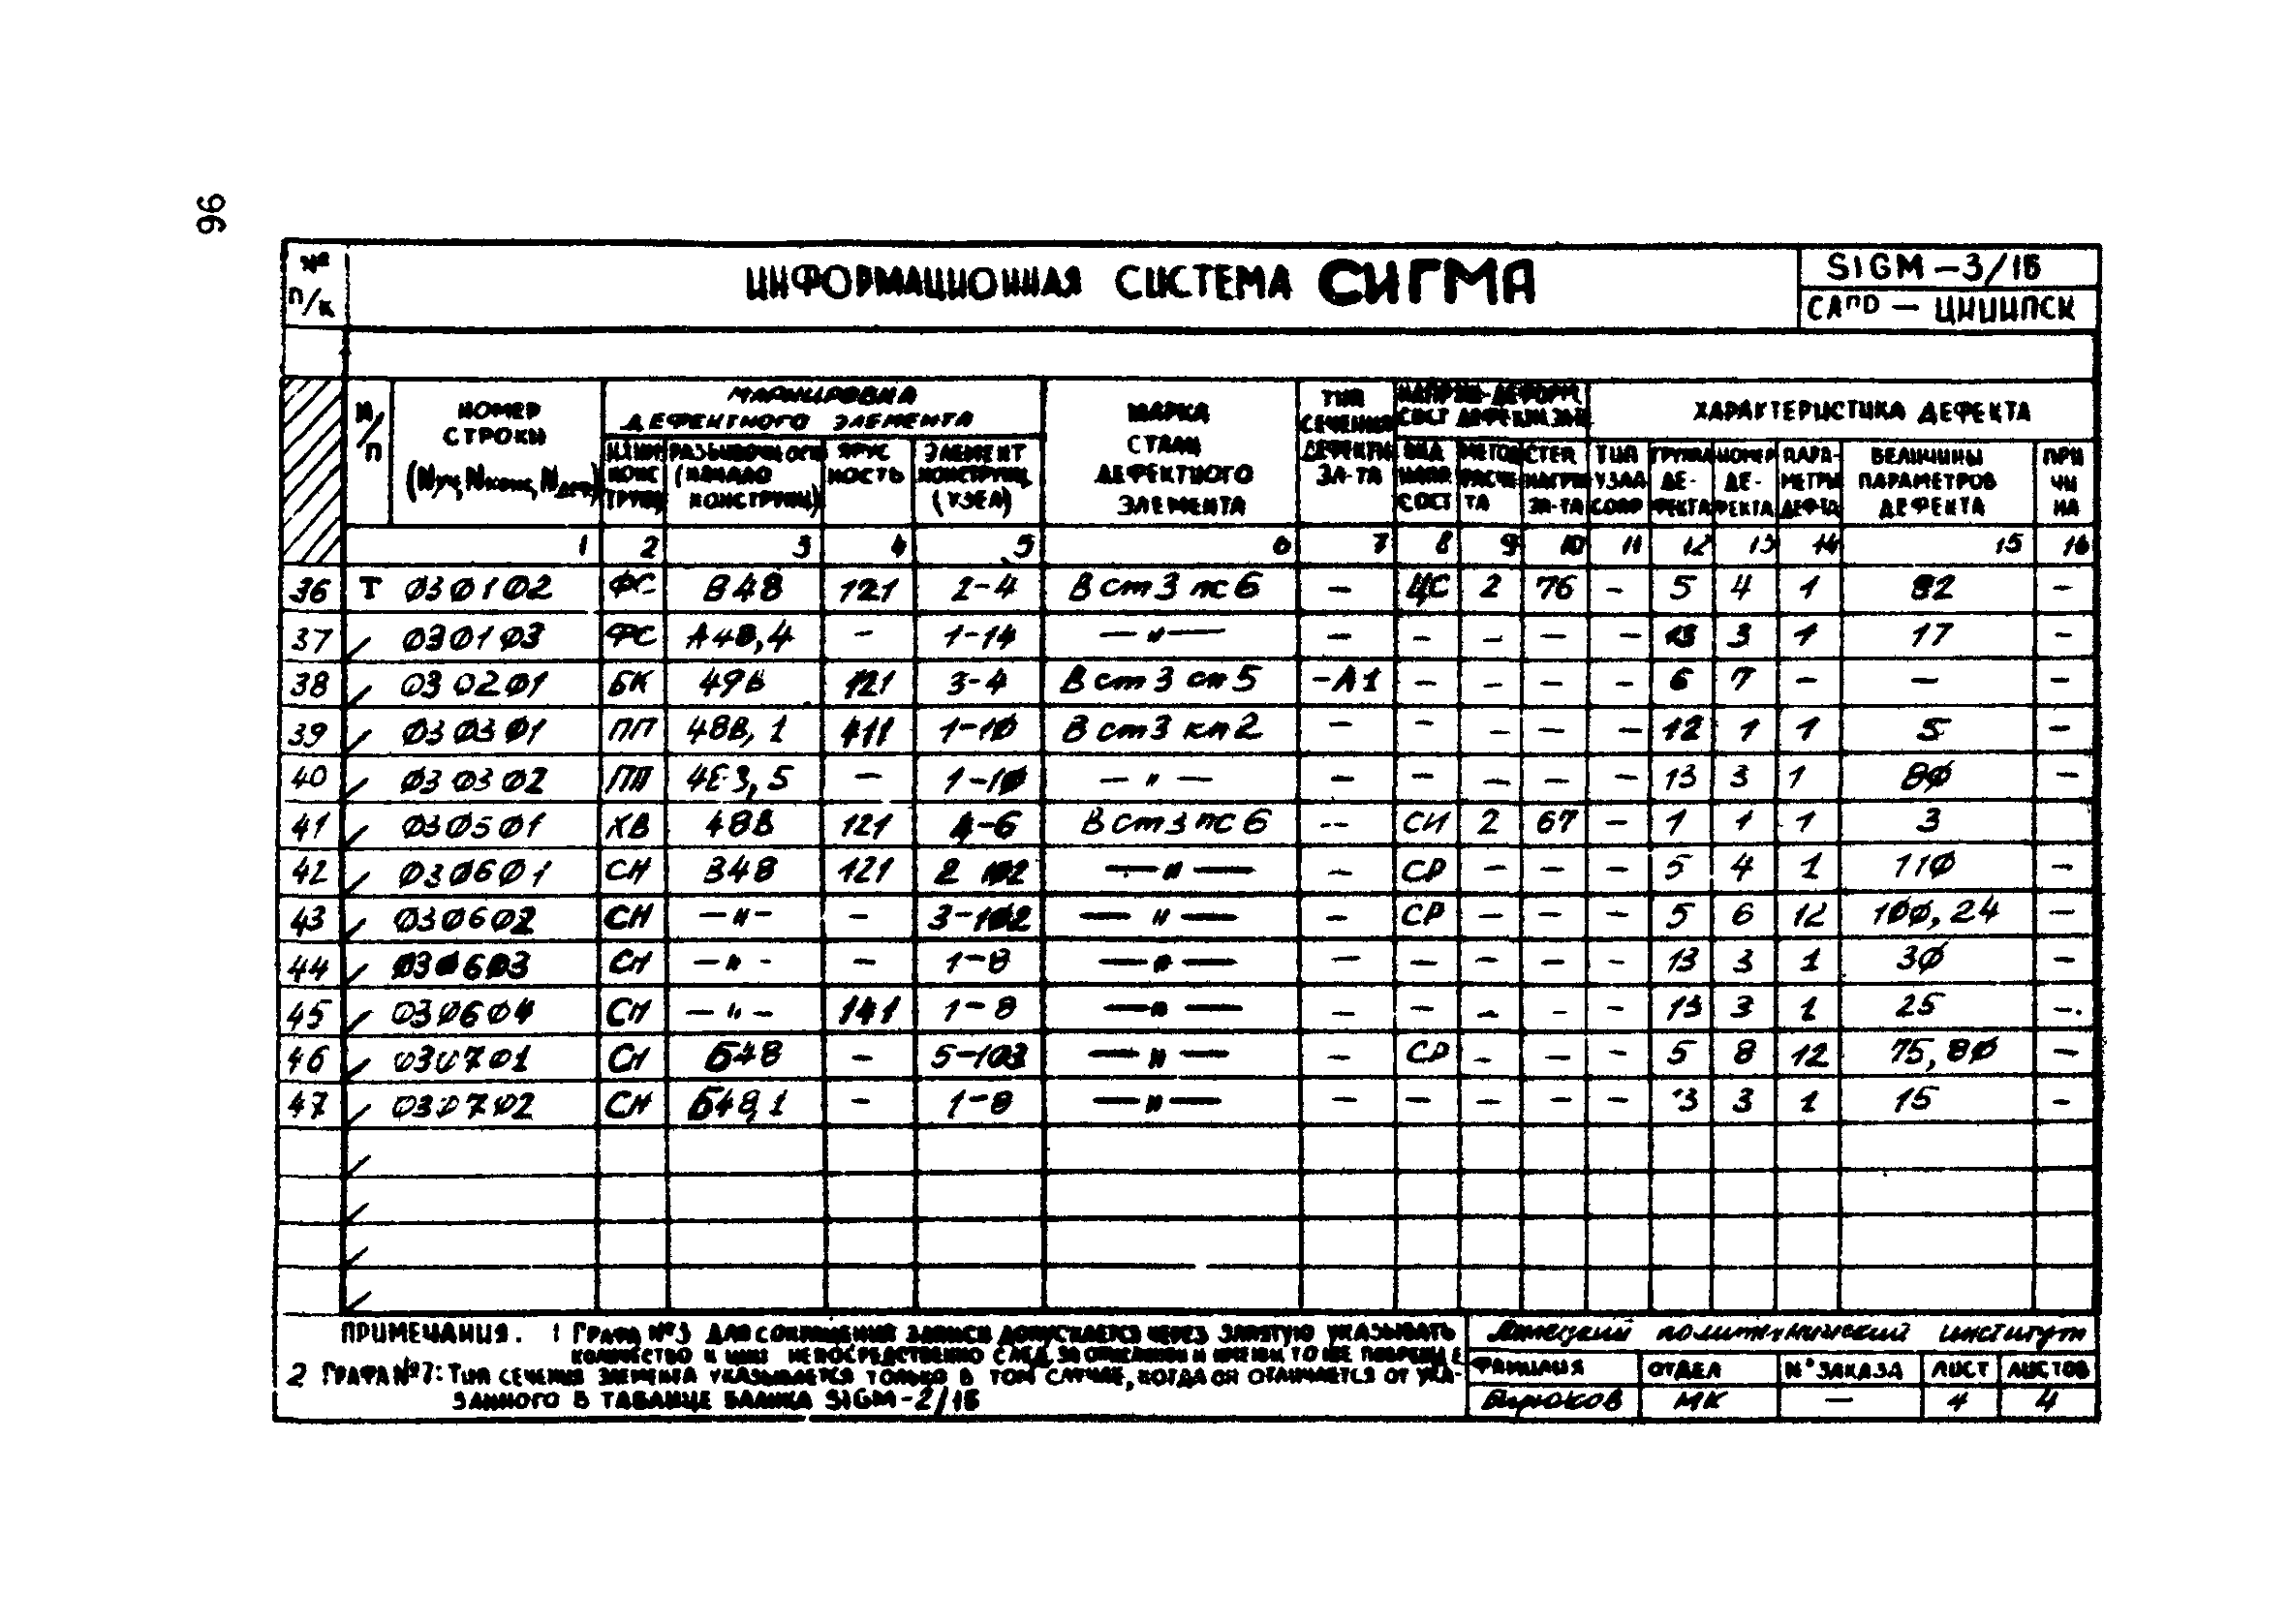 96
№ п/к
ИНФОРМАЦИОННАЯ СИСТЕМА СИГМА
SIGM – 3/1Б
САПР – ЦНИИПСК
И/П
НОМЕР СТРОКИ
МАРКИРОВКА ДЕФЕКТНОГО ЭЛЕМЕНТА
МАРКА СТАЛИ ДЕФЕКТНОГО ЭЛЕМЕНТА
ТИП СЕЧЕНИЯ ЭЛ-ТА
ХАРАКТЕРИСТИКА ДЕФЕКТА
КОНСТРУКЦ
(НАЧАЛО КОНСТРУКЦ)
ЯРУСНОСТЬ
ЭЛЕМЕНТ КОНСТРУКЦ. (УЗЕЛ)
ВИД НАПР СОСТ
МЕТОД РАСЧЕТА
ТИП УЗЛА СОПР
ГРУППА ДЕФЕКТА
НОМЕР ДЕФЕКТА
ПАРАМЕТРЫ
ВЕЛИЧИНЫ ПАРАМЕТРОВ ДЕФЕКТА
ПРИЧИНА
1 2 3 4 5 6 7 8 9 10 11 12 13 14 15 16
36 Т 030102 ФС В48 121 2-4 Вст3пс6 – ЦС 2 76 – 5 4 1 82 –
37 030103 ФС А48,4 – 1-14 –"– – – – – – 13 3 1 17 –
38 030201 БК 49В 121 3-4 Вст3сп5 -А1 – – – – 6 7 – – –
39 030301 ПП 48В,1 411 1-10 Вст3кп2 – – – – – 12 1 1 5 –
40 030302 ПП 5 – 1-10 –"– – – – – – 13 3 1 80 –
41 030501 ХВ 48В 121 4-6 Вст3пс6 -- СИ 2 67 – 1 1 1 3
42 030601 СН В48 121 2 102 –"– – СР – – – 5 4 1 110 –
43 030602 СН –"– – 3-102 –"– – СР – – – 5 6 12 100,24 –
44 030603 СН –"– – 1-8 –"– – – – – – 13 3 1 30 –
45 030604 СН –"– 141 1-8 –"– – – – – – 13 3 1 25 –.
46 030701 СН Б48 – 5-103 –"– – СР – – – 5 8 12 75,80 –
47 030702 СН Б48,1 – 1-8 –"– – – – – – 3 3 1 15 –
ПРИМЕЧАНИЯ. 1 ГРАФА №3 ДЛЯ СОКРАЩЕНИЯ ЗАПИСИ ДОПУСКАЕТСЯ ЧЕРЕЗ ЗАПЯТУЮ УКАЗЫВАТЬ
КОЛИЧЕСТВО НЕПОСРЕДСТВЕННО
2 ГРАФА №7: ТИП СЕЧЕНИЯ ЭЛЕМЕНТА УКАЗЫВАЕТСЯ ТОЛЬКО В ТОМ СЛУЧАЕ, КОГДА ОН ОТЛИЧАЕТСЯ ОТ УКА-
ЗАННОГО В ТАБЛИЦЕ БЛАНКА SIGM-2/1Б
Донецкий политехнический институт
ФАМИЛИЯ ОТДЕЛ N° ЗАКАЗА ЛИСТ ЛИСТОВ
Бирюков МК – 4 4